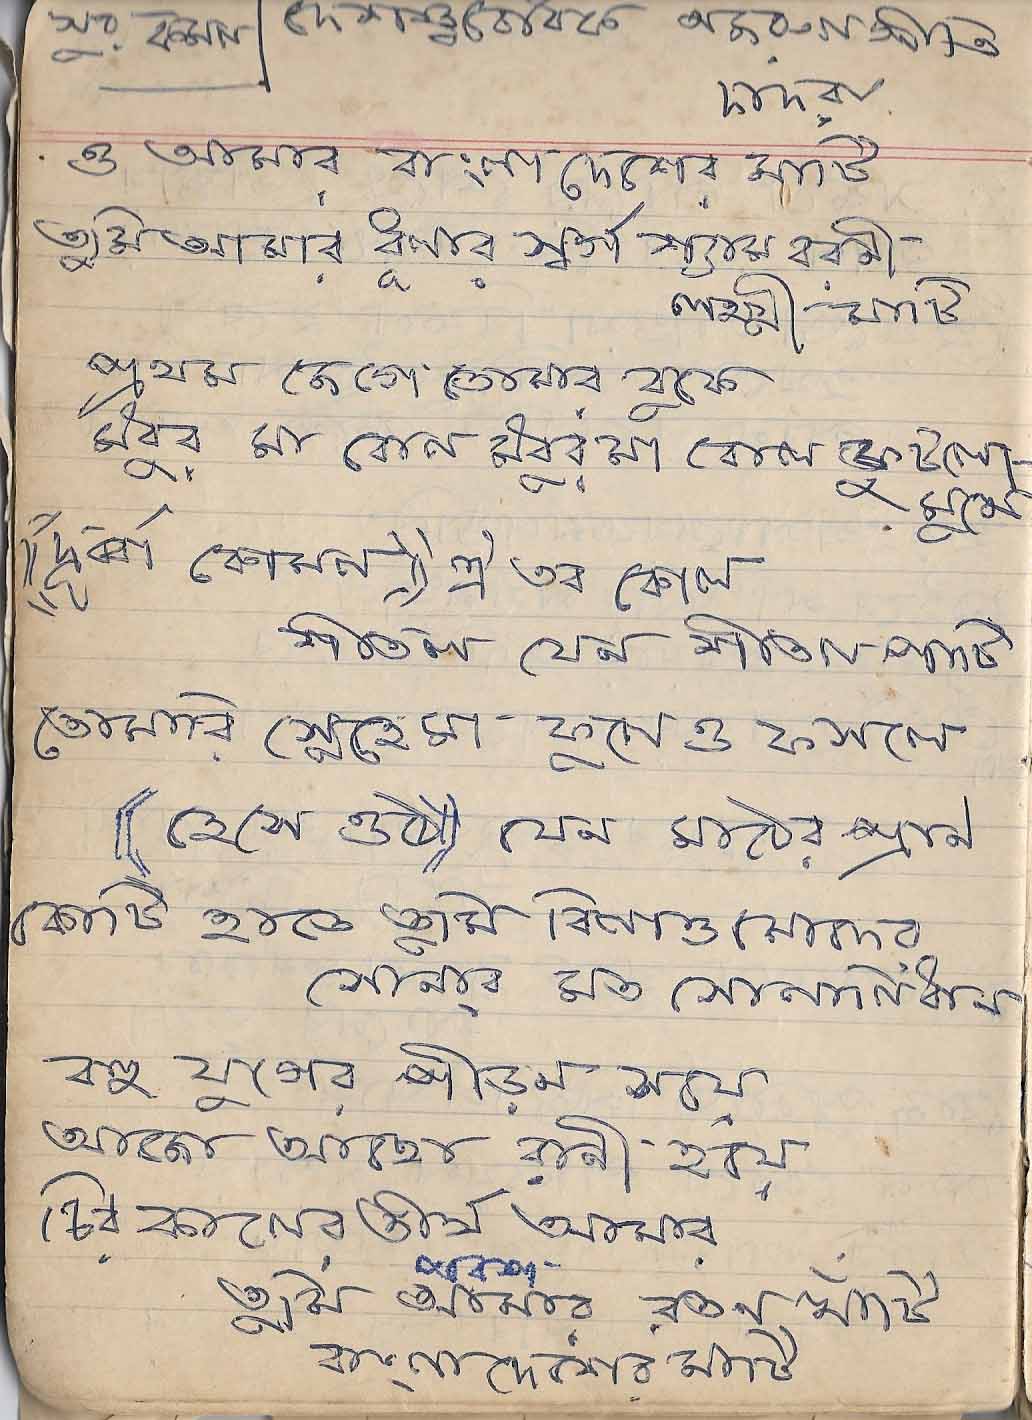 সুর কমল দেশাত্মবোধক
দাদরা
ও আমার বাংলা দেশের মাটি
তুমি আমার ধূলার স্বর্গ শ্যাম বরনী
লক্ষ্মী মাটি
প্রথম জেগে তোমার বুকে
মধুর মা বোল মধুর মা বোল ফুটলো
মুখে
((দূর্ব্বা কোমল)) ঐ তব কোল
শীতল যেন শীতল পাটি
তোমারি স্নেহ মা ফুলে ও ফসলে
((হেসে ওঠে)) যেন মাঠের প্রাণ
কোটি হাতে তুমি বিলাও মোদের
সোনার মত সোনালি ধান
বহু যুগের পীড়ন সয়ে
আজো আছো রানী হয়ে
চির কালের তীর্থ আমার
পরশ
তুমি আমার রতন খাঁটি
বাংলাদেশের মাটি